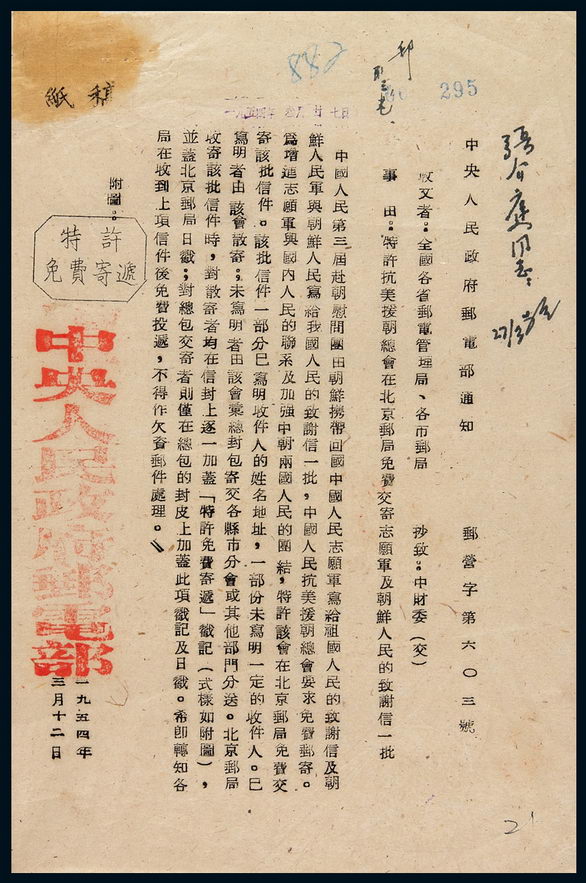 882
295
郵
紙稿
一九五四年 三月 廿七日
中央人民政府郵電部通知 郵營字第六〇三號
收文者:全國各省郵電管理局、各市郵局 抄致:中財委(交)
事 由:特許抗美援朝總會在北京郵局免費交寄志願軍及朝鮮人民的致謝信一批
中國人民第三屆赴朝慰問團由朝鮮携帶回國中國人民志願軍寫給祖國人民的致謝信及朝
鮮人民軍與朝鮮人民寫給我國人民的致謝信一批,中國人民抗美援朝總會要求免費郵寄。
爲增進志願軍與國内人民的聯系及加强中朝兩國人民的團結,特許該會在北京郵局免費交
寄該批信件。該批信件一部分已寫明收件人的姓名地址,一部份未寫明一定的收件人。已
寫明者由該會散寄;未寫明者由該會彙總封包寄交各縣市分會或其他部門分送。北京郵局
收寄該批信件時,對散寄者均在信封上逐一加蓋「特許免費寄遞」戳記(式樣如附圖),
並蓋北京郵局日戳;對總包交寄者則僅在總包的封皮上加蓋此項戳記及日戳。希即轉知各
局在收到上項信件後免費投遞,不得作欠資郵件處理。
附圖:
特許
免費寄遞
中央人民政府郵電部
一九五四年
三月十二日
21